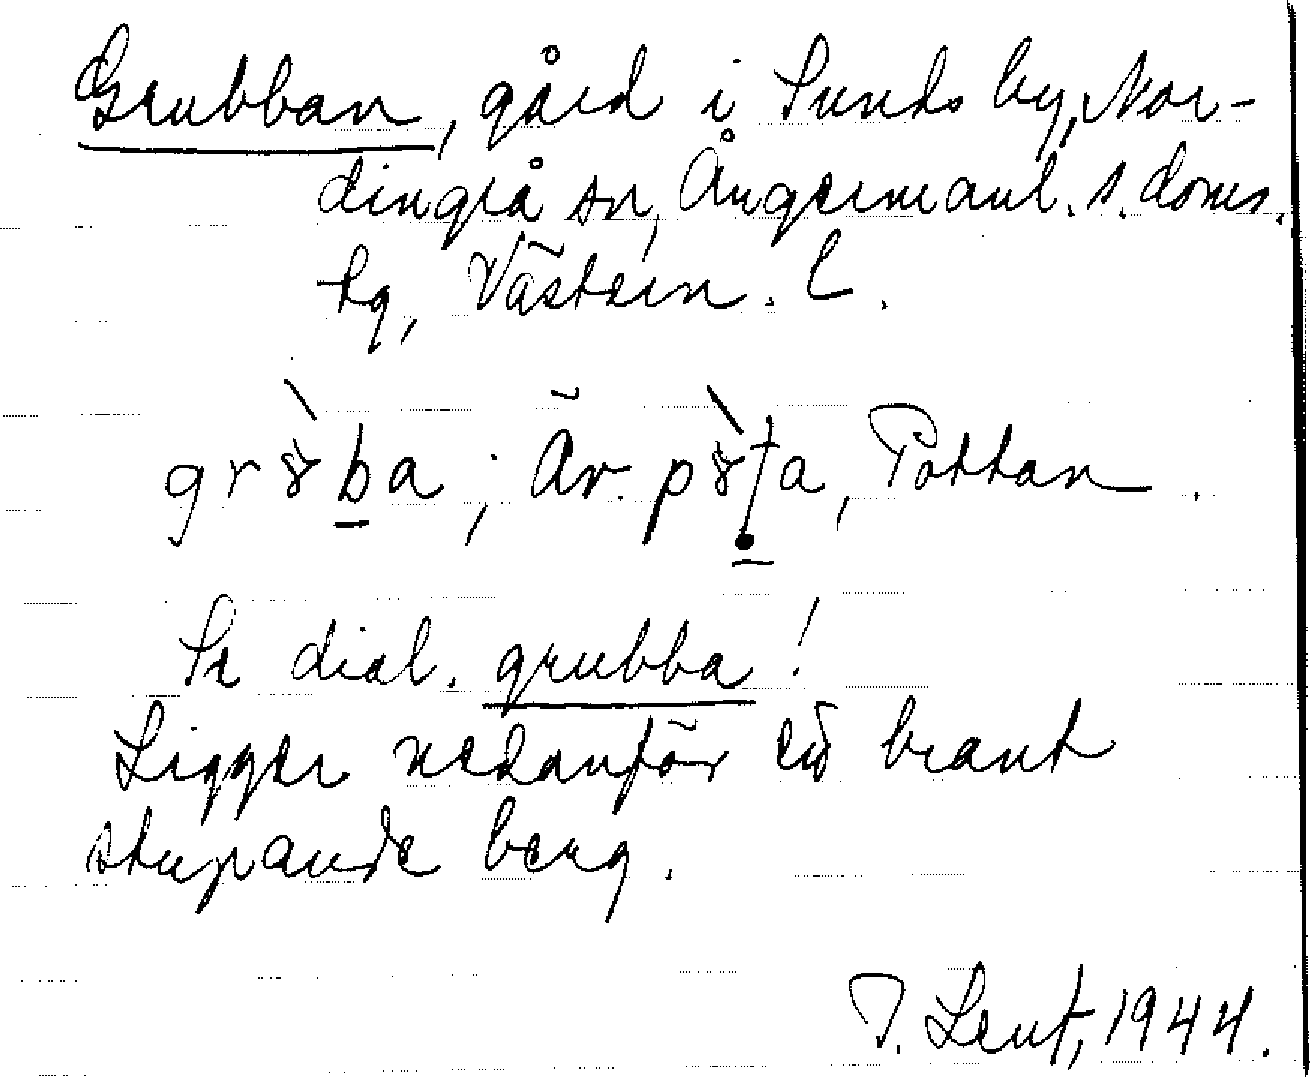 Grubban, gård i Sunds by, Nor-
dingrå sn, Ångermanl. s. doms.
tg, Västern. l.
grꞷ̀ba; Äv. pꞷ̀ta, Pottan.
Se dial. grubba!
Ligger nedanför ett brant
stupande berg.
T. Lent, 1944.